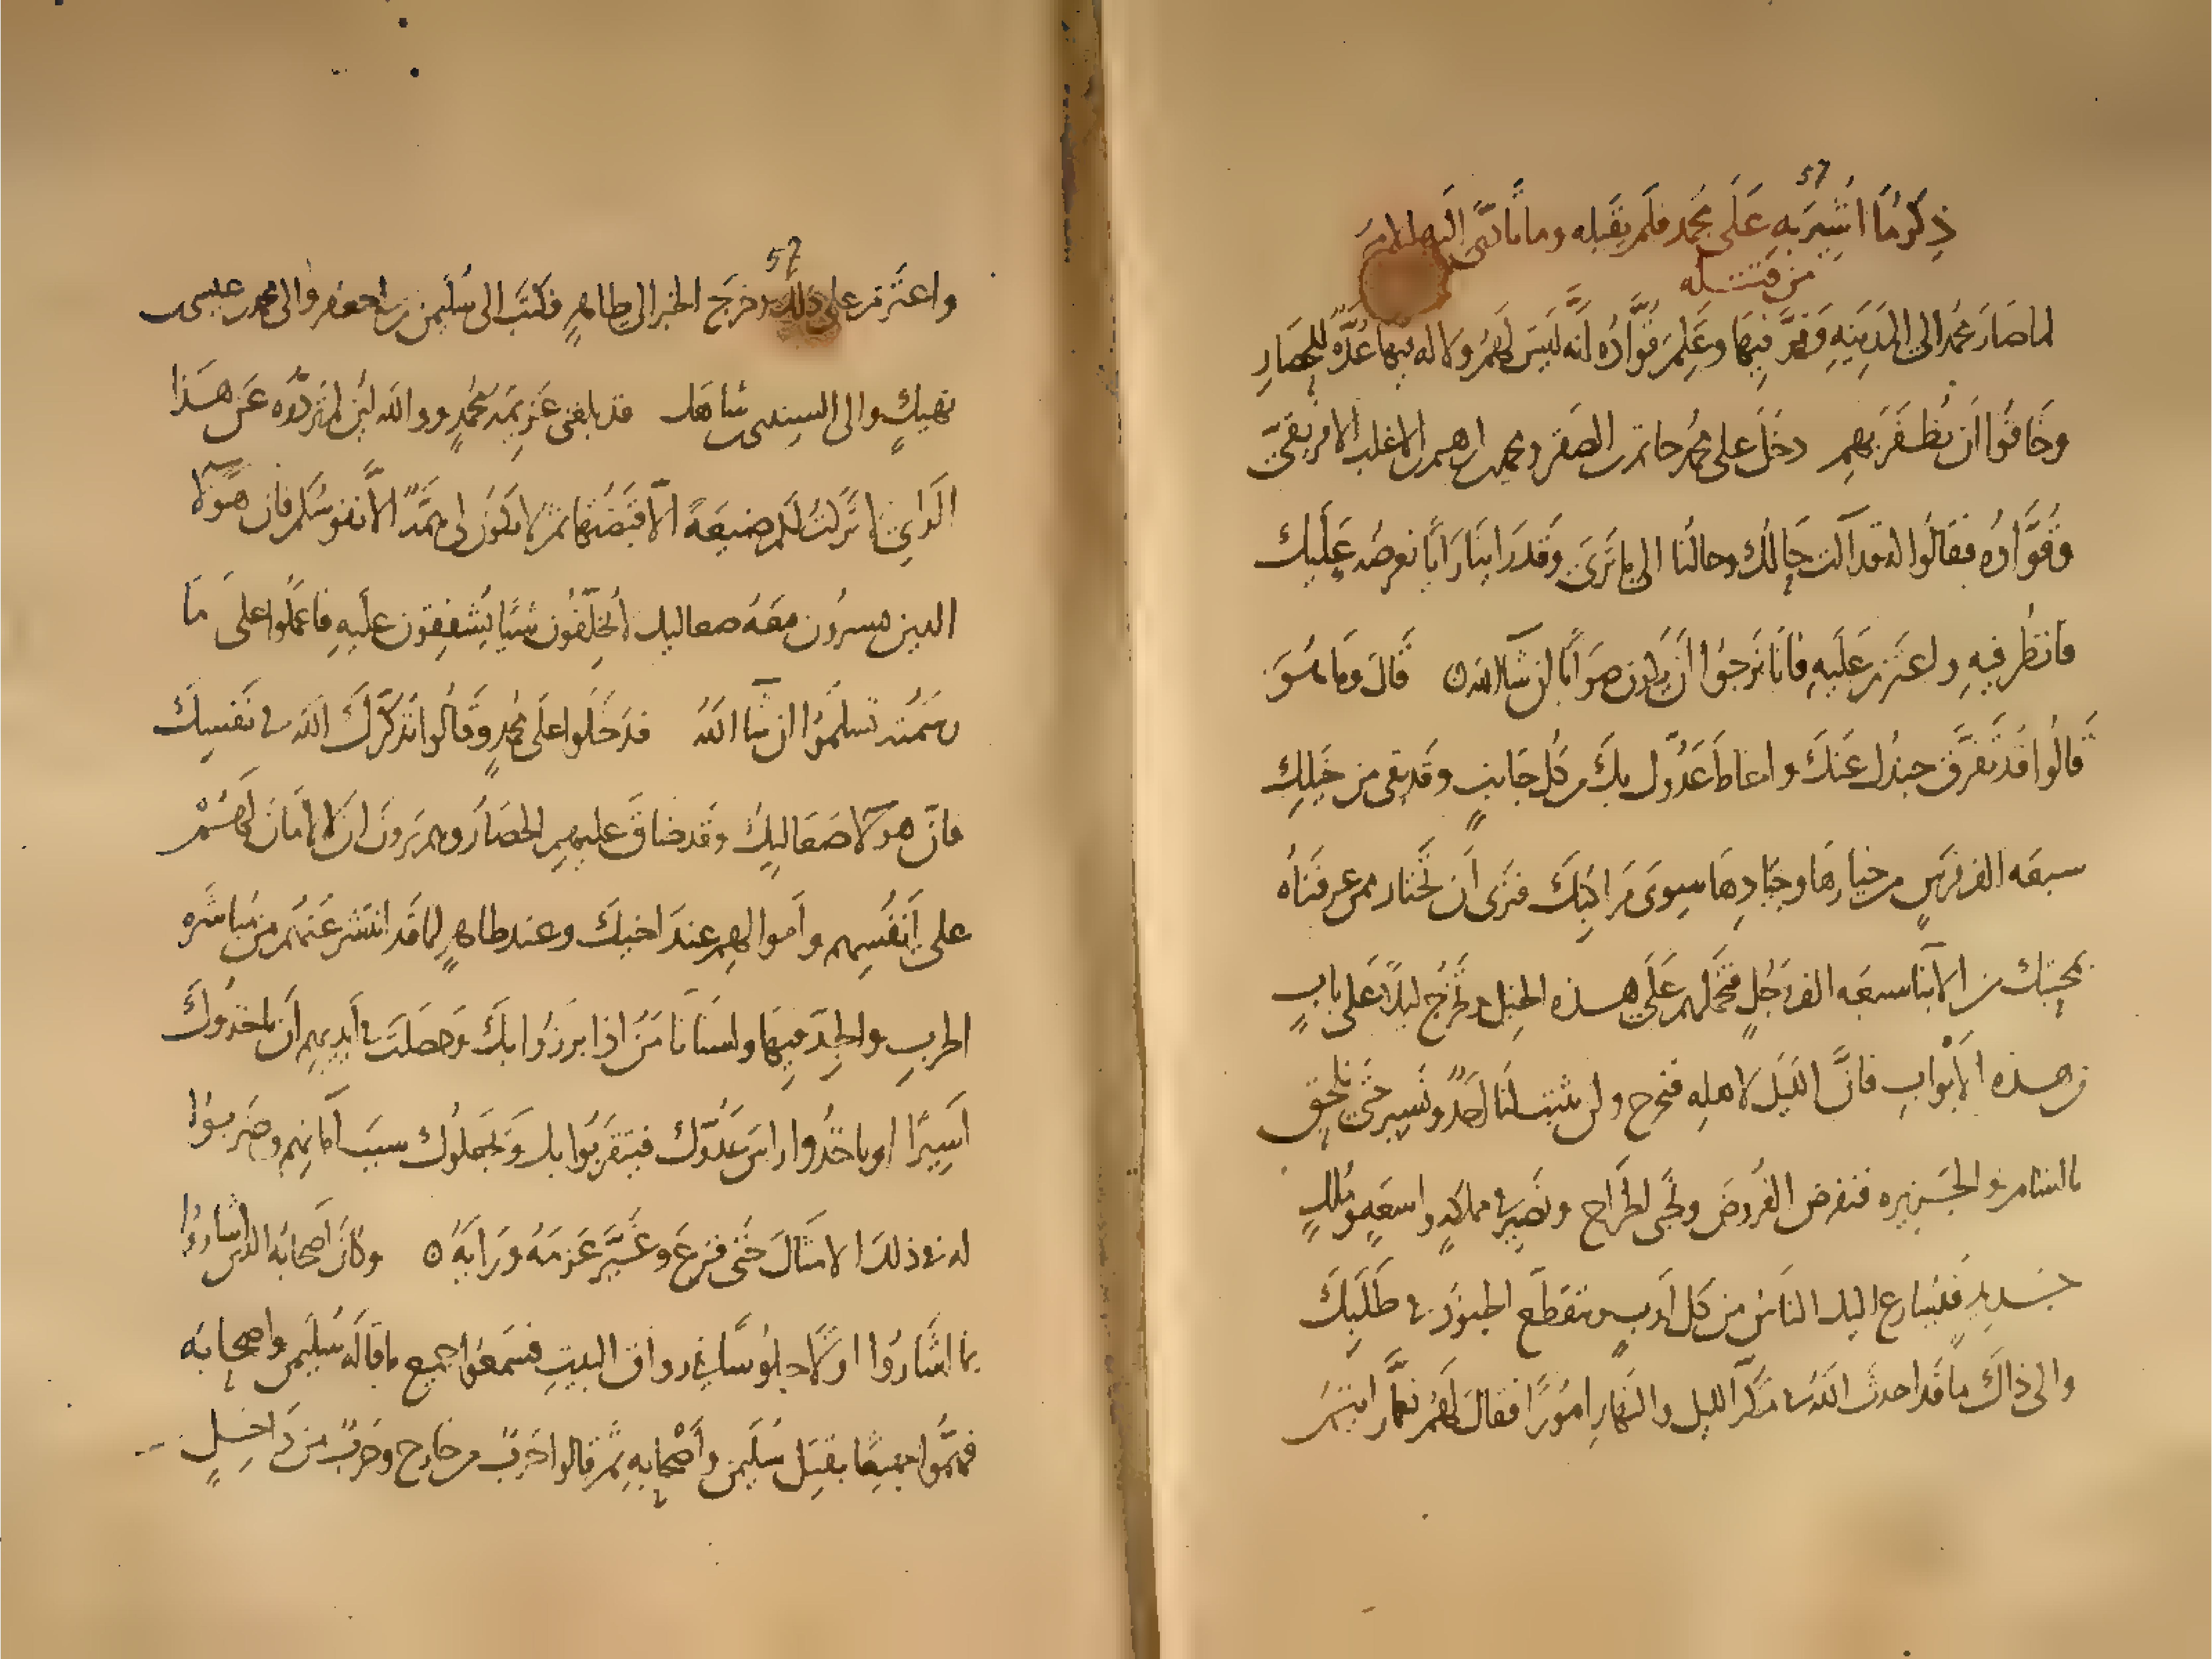 57
ذِكرُ مَا اُشِيرَ بِهِ عَلَى مُحمد فلَم يقبَله وما تأدّى اليه الامر
من قتله
لما صَارَ مُحمد الى المَدِينَهِ وَقَرَّ فِيهَا وَعَلِمَ قُوَّادُه أنّه لَيسَ لَهُمْ ولا له فِيهَا عُدَّه لِلحِصَارِ
وخَافُوا أن يُظفَرَ بهِم دخَل على محمد حاتم بن الصقر ومحمد بن ابرهيم بن الاغلب الافريقىّ
وقُوَّادُه فقالُوا له قد آلت حَالُك وحالُنا الى ما تَرَى وَقَد رَأينَا رَأيًا نعرضُه عَلَيك
فانظُر فيهِ واعتَزِم عَلَيهِ فانا نَرجُوا أن يكون صَوابًا ان شآ الله ه قَالَ وما هُوَ
قَالُوا قَد تَفَرَّق جندُك عَنكَ واحاطَ عَدُوّك بكَ من كُل جَانبٍ وقَد بقى من خَيلِك
سبعَه الف فرَسٍ من خيارِهَا وجيَادِهَا سِوَى مَراكِبكَ فنَرَى أن نختار ممن عرفنَاه
بمحبّتك من الابنآ سبعَه الف رَجُلٍ فنَحمِلهم عَلَى هذه الخيل وتَخرُج ليلًا على بابٍ
من هذه الأبوابِ فانَّ الليل لاهله فنخرج ولن يثبت لنَا أحَدٌ ونَسِير حَتى نلحق
بالشام والجَزِيره فنفرض الفُروضَ ونجبى الخَراج ونَصِير فى مملكهٍ واسعَهٍ ومُلكٍ
جَديدٍ فيُسارع اليك النَاسُ من كل أوبٍ وينقطع الجنُودُ فى طَلَبِكَ
والى ذاكَ ما قَد احدث اللهُ فى مَكَرّ الليل والنَهارِ امُورًا فقالَ لَهُمْ نِعمَّا رَايتُم
57
واعتَزم على ذلك وخرَج الخبر الى طاهرٍ فكتَبَ الى سُليمن بن ابى جعفر والى محمد بن عيسى
نهيكٍ والى السِندى بن شاهك قد بلغنى عَزِيمَه مُحمدٍ ووالله لئِن لم تردّوه عَن هَذا
الرَّاي لا تَركتُ لكم ضيعَةً الّا قبَضتُها ثم لا تكونُ لى هِمَّةٌ الّا نفوسُكم فان هؤلآ
الذين يسيرُون معَهُ صعاليك لا يُخلِّفُون شيًا يُشفِقون عليهِ فاعمَلُوا على مَا
رسَمتُه تسلَمُوا ان شآ اللهُ فدَخَلُوا على مُحمدٍ وقَالُوا نُذكّرُكَ اللهَ فى نَفسِكَ
فانّ هؤلآ صَعَاليكٌ وقَد ضاقَ عليهِم الحصَارُ وهم يَرونَ ان لا أمَانَ لَهُمْ
على أنفُسِهم وأموالهِم عندَ اخيكَ وعند طاهرٍ لما قَد انتشَر عَنهُم من مُباشَره
الحربِ والجِدّ فيهَا ولسنَا نأمَنُ اذا برزُوا بكَ وَحصَلتَ فى أيدِيهِم أن ياخذُوكَ
أسِيرًا او ياخذُوا راسَ عَدُوّك فيتقرّبُوا بك وَيجعلُوك سببَ أمانهم وضَربُوا
له فى ذلك الامثَالَ حَتى فَزِعَ وغَيَّر عَزمَهُ ورَايَهُ ه وكانَ أصحابُه الذين اشارُوا
بما اشَارُوا اوّلًا جلُوسًا فى رواق البيتِ فسَمعُوا جميع ما قالَه سُليمن واصحابه
فهمُّوا جميعًا بقتلِ سُليمن وأصْحابِهِ ثم قالوا حَربٌ من خارج وحَربٌ من دَاخلٍ